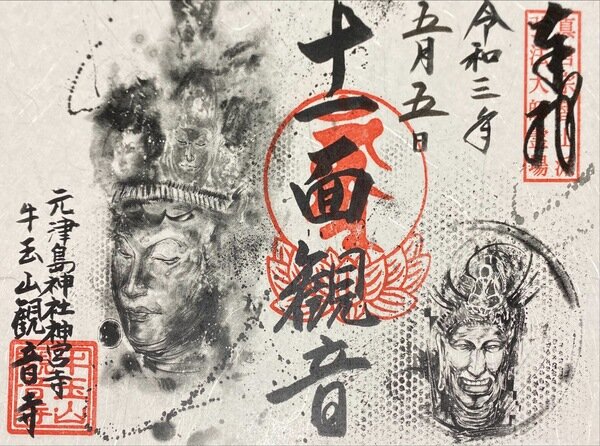 奉拝
真言宗智山派
令和三年
五月五日
十一面観音
元津島神社神宮寺
牛玉山観音寺
牛玉山
観音寺